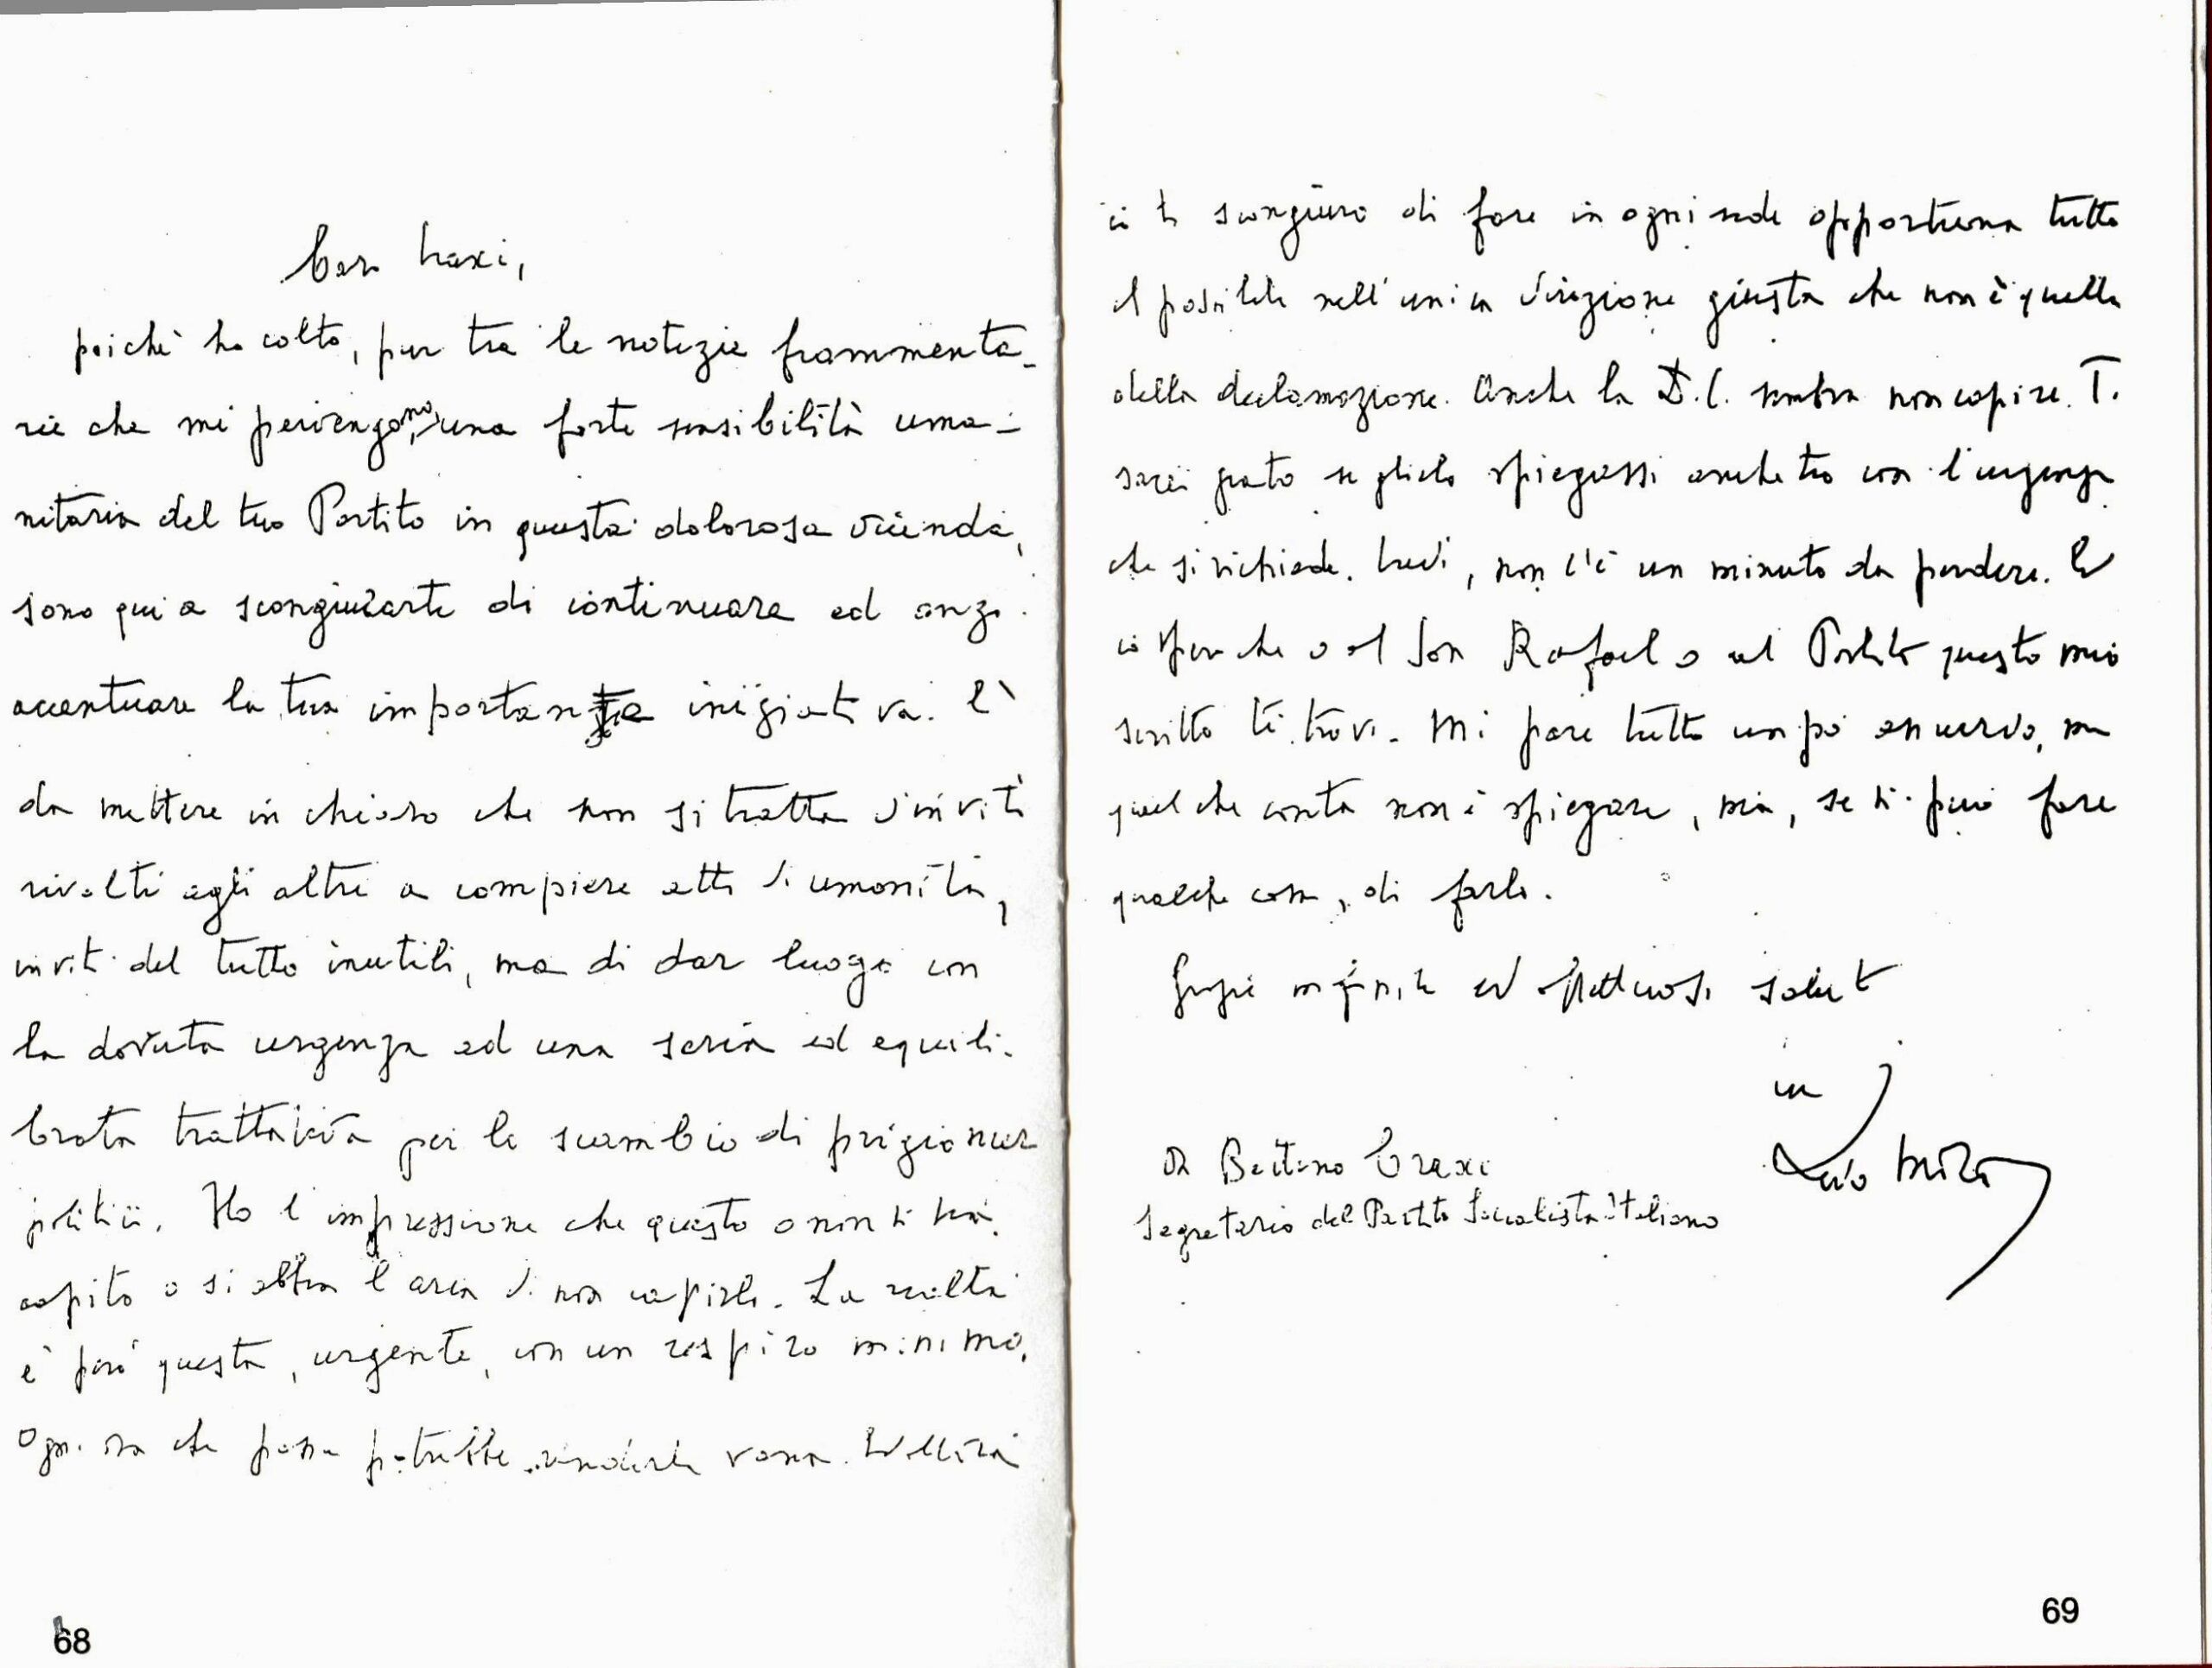 Caro Craxi,
poiché ho colto, pur tra le notizie frammenta-
rie che mi pervengono, una forte sensibilità uma-
nitaria del tuo Partito in questa dolorosa vicenda,
sono qui a scongiurarti di continuare ed anzi
accentuare la tua importante iniziativa. È
da mettere in chiaro che non si tratta d'inviti
rivolti agli altri a compiere atti di umanità,
inviti del tutto inutili, ma di dar luogo con
la dovuta urgenza ad una seria ed equili-
brata trattativa per lo scambio di prigionieri
politici. Ho l'impressione che questo o non si sia
capito o si abbia l'aria di non capirlo. La realtà
è però questa, urgente, con un respiro minimo.
Ogni ora che passa potrebbe renderla vana. Ed allora
io ti scongiuro di fare in ogni sede opportuna tutto
il possibile nell'unica direzione giusta che non è quella
della declamazione. Anche la D.C. sembra non capire. Ti
sarei grato se glielo spiegassi anche tu con l'urgenza
che si richiede. Credi, non c'è un minuto da perdere. E
io spero che o al San Rafael o al Partito questo mio
scritto ti trovi. Mi pare tutto un po' assurdo, ma
quel che conta non è spiegare, ma, se si può fare
qualche cosa, di farlo.
Grazie infinite ed affettuosi saluti
tuo
Aldo Moro
On Bettino Craxi
Segretario del Partito Socialista Italiano
68
69